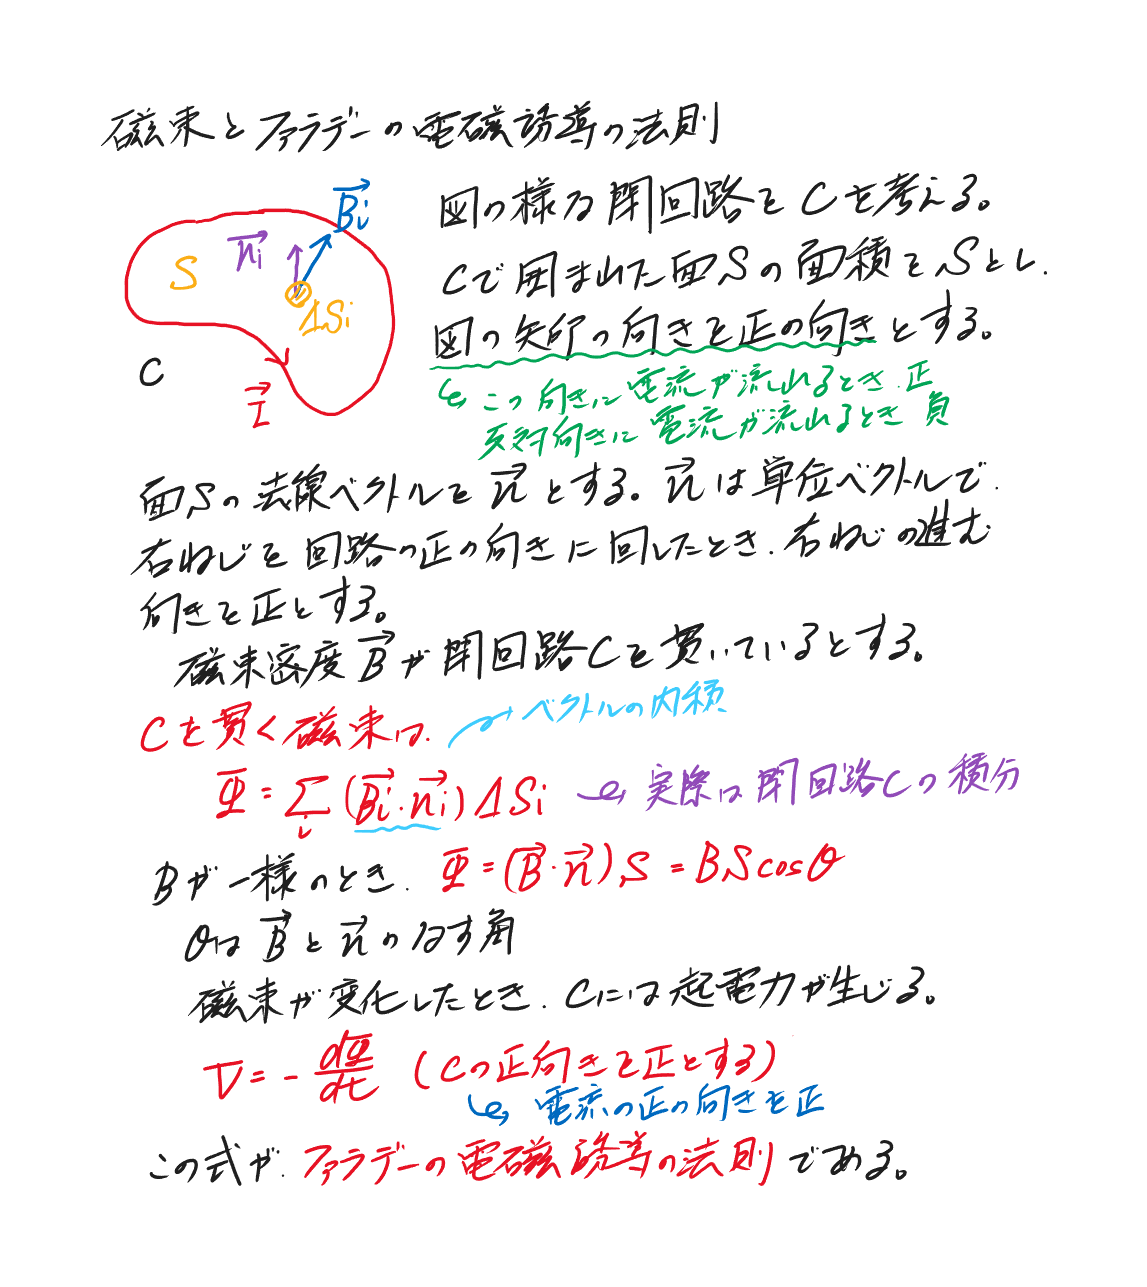 磁束とファラデーの電磁誘導の法則
図の様な閉回路をCを考える。
Cで囲まれた面Sの面積をSとし、
図の矢印の向きを正の向きとする。
この向きに電流が流れるとき、正
反対向きに電流が流れるとき 負
S
n⃗i
B⃗i
ΔSi
C
I⃗
面Sの法線ベクトルをn⃗とする。n⃗は単位ベクトルで、
右ねじを回路の正の向きに回したとき、右ねじの進む
向きを正とする。
磁束密度B⃗が閉回路Cを貫いているとする。
Cを貫く磁束は、
ベクトルの内積
Φ = Σi (B⃗i・n⃗i) ΔSi
実際は閉回路Cの積分
Bが一様のとき、 Φ = (B⃗・n⃗)S = BScosθ
θはB⃗とn⃗のなす角
磁束が変化したとき、Cには起電力が生じる。
V = - dΦ/dt (Cの正向きを正とする)
電流の正の向きを正
この式が、ファラデーの電磁誘導の法則である。